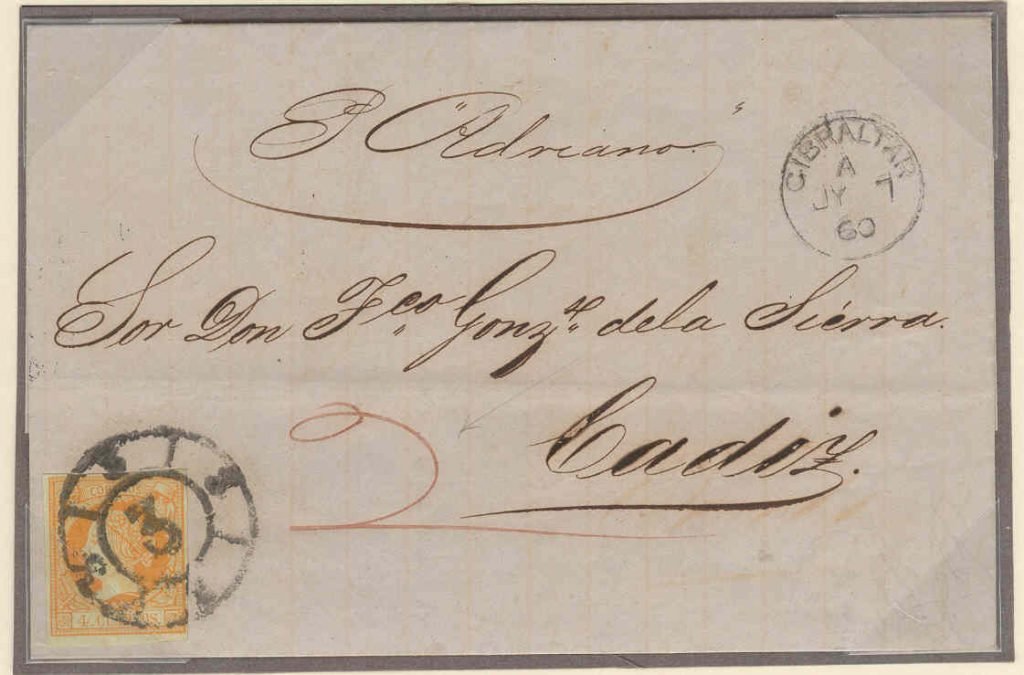 P "Adriano"
GIBRALTAR
A
JY 7
60
Sor Don Fco Gonzz dela Sierra.
2
Cadiz.
3
4 CUARTOS